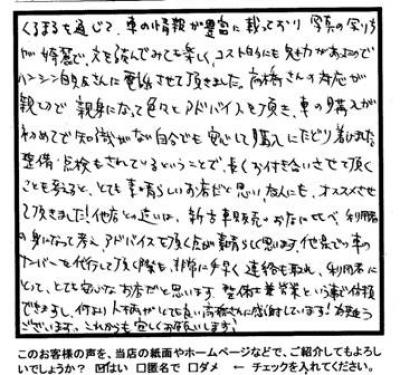 くるまるを通じて、車の情報が豊富に載っており写真の写り方
が綺麗で、文を読んでみても楽しく、コスト的にも魅力があったので
ハンシン自動さんに電話させて頂きました。高橋さんの対応が
親切で親身になって色々とアドバイスを頂き、車の購入が
初めてで知識がない自分でも安心して購入にたどり着けました
整備・点検もされているということで、長くお付き合いさせて頂く
ことも考えると、とても素晴らしいお店だと思い、友人にも、オススメさせ
て頂きました!他店との違いは、新古車販売の に比べ利用者
の身になって考え、アドバイスを頂く点が素晴らしく思います。他県での車の
ナンバーを代行して頂く際も、非常に手早く連絡を取れ、利用者に
とって、とても安心なお店だと思います。整備士兼営業という事で信頼
できますし、何より人柄がとても良い高橋さんに感謝しています!有難う
ございます。これからも宜しくお願いします!
このお客様の声を、当店の紙面やホームページなどで、ご紹介してもよろし
いでしょうか? ☑はい □匿名で □ダメ ← チェックを入れてください。